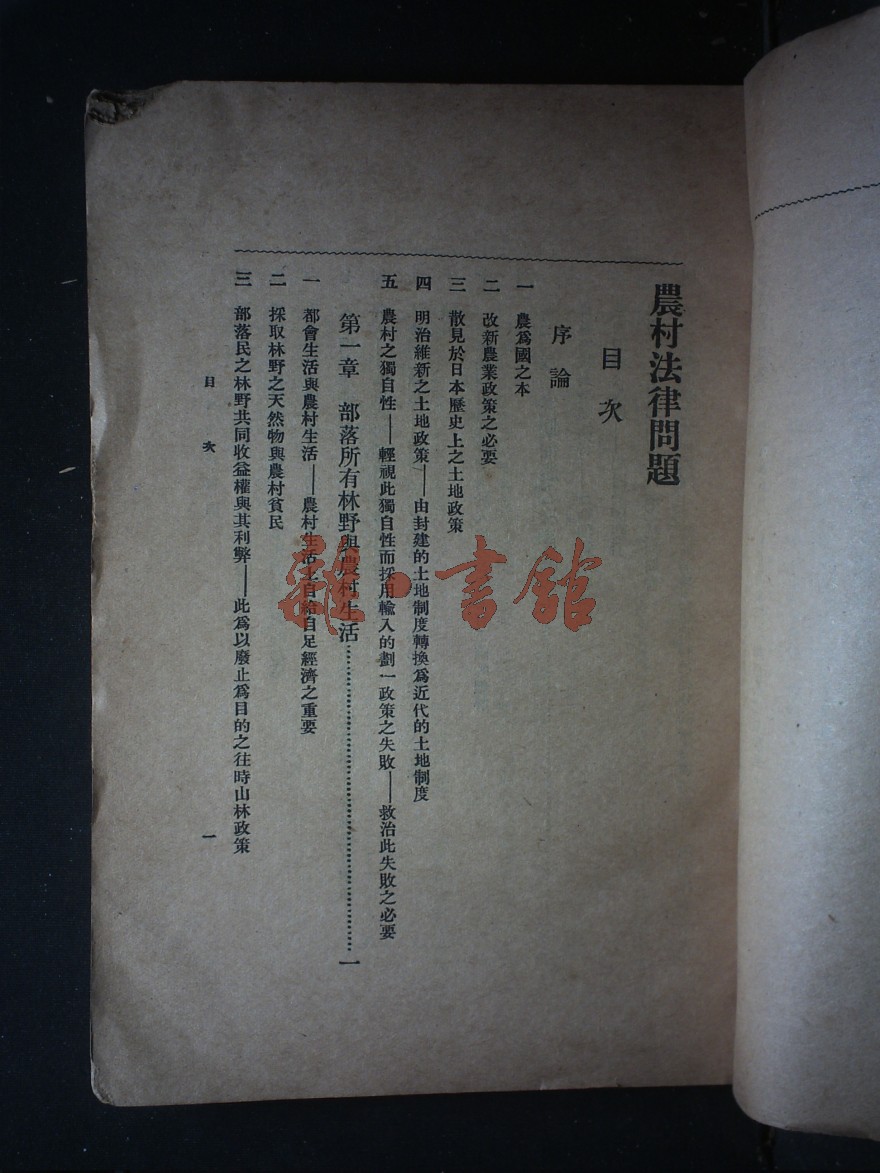 農村法律問題
目次
序論
一 農爲國之本
二 改新農業政策之必要
三 散見於日本歷史上之土地政策
四 明治維新之土地政策——由封建的土地制度轉換爲近代的土地制度
五 農村之獨自性——輕視此獨自性而採用輸入的劃一政策之失敗——救治此失敗之必要
第一章 部落所有林野與農村生活……一
一 都會生活與農村生活——農村生活上自給自足經濟之重要
二 採取林野之天然物與農村貧民
三 部落民之林野共同收益權與其利弊——此爲以廢止爲目的之往時山林政策
目次 一
雜·書館